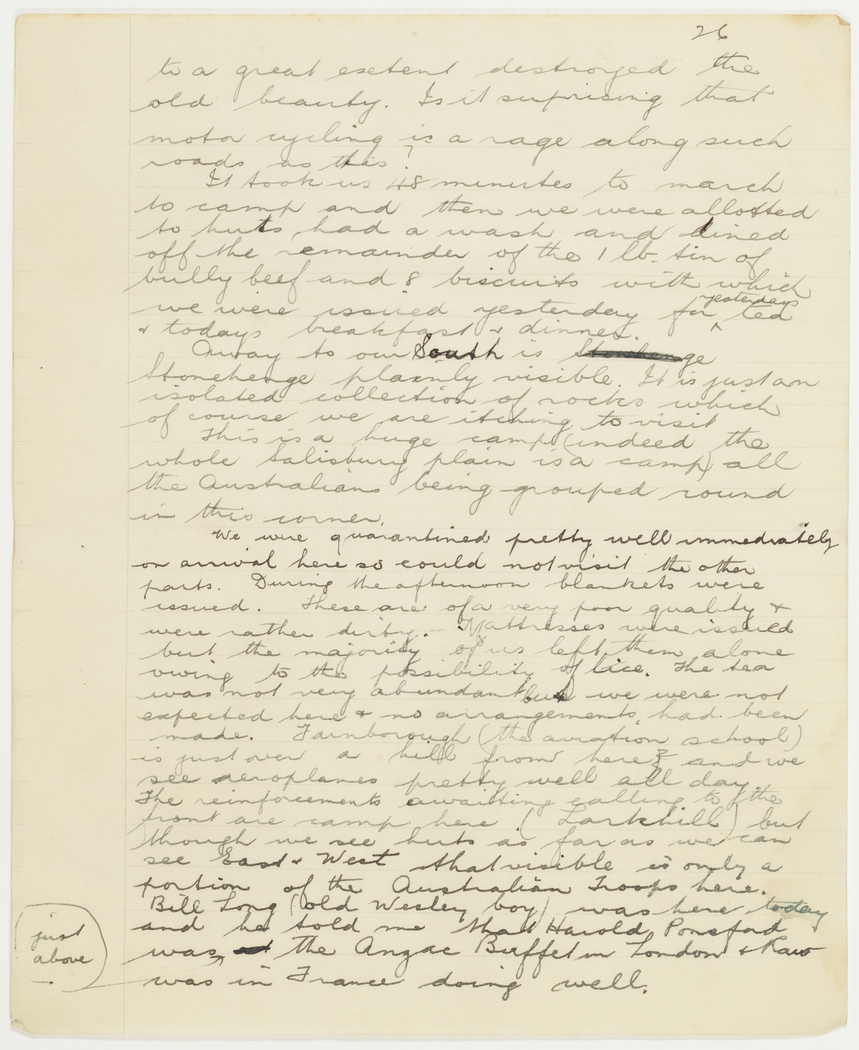 26
to a great esetent destroyed the
old beauty. Is it surprising that
motor cycling is a rage along such
roads as this?
It took us 48 minutes to march
to camp and then we were allotted
to huts had a wash and dined
off the remainder of the 1 lb. tin of
bully beef and 8 biscuits with which
we were issued yesterday for yesterdays tea
& todays breakfast & dinner.
Away to our South is
Stonehenge plainly visible. It is just an
isolated collection of rocks which
of course we are itching to visit
This is a huge camp (indeed the
whole Salisbury plain is a camp) all
the Australians being grouped round
in this corner.
We were quarantined pretty well immediately
on arrival here so could not visit the other
parts. During the afternoon blankets were
issued. These are of a very poor quality &
were rather dirty. Mattresses were issued
but the majority of us left them alone
owing to the possibility of lice. The tea
was not very abundant but we were not
expected here & no arrangements had been
made. Farnborough (the aviation school)
is just over a hill from here and we
see aeroplanes pretty well all day.
The reinforcements awaiting calling to the
front are camp here (Larkhill) but
though we see huts as far as we can
see East & West that visible is only a
portion of the Australian Troops here.
Bill Long (old Wesley boy) was here today
and he told me that Harold Ponsford
was the Anzac Buffet in London & Raw
just
above
was in France doing well.